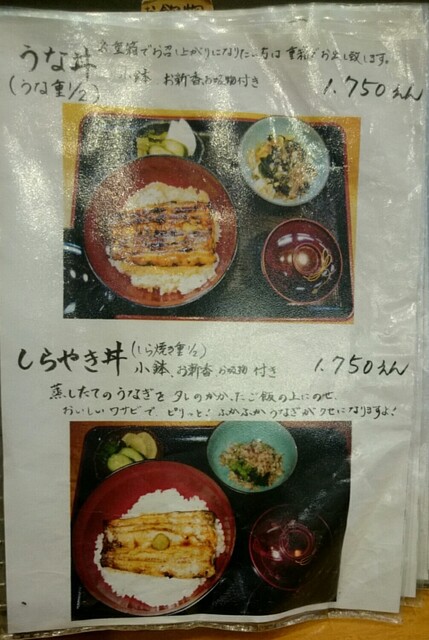 うな丼 お重箱でお召し上がりになりたい方は重箱でお出し致します。
(うな重1/2) 小鉢 お新香 お吸物付き 1.750えん
しらやき丼 (しら焼き重1/2) 1.750えん
小鉢、お新香 お吸物 付き
蒸したてのうなぎを タレのかかったご飯の上にのせ
おいしい ワサビで、ピリッと! ふかふかうなぎが クセになりますよ!